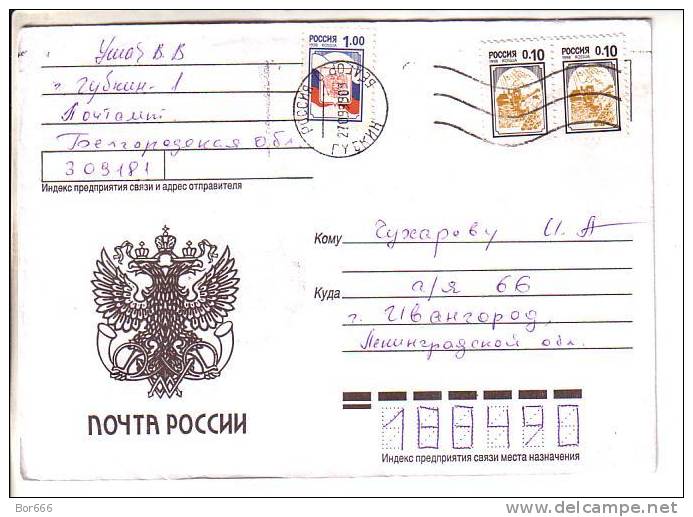 Ушач В. В
г. Губкин-1
Почтамт
Белгородская обл
309181
Индекс предприятия связи и адрес отправителя
РОССИЯ 1.00
1998
РОССИЯ 0.10
1998
РОССИЯ 0.10
1998
РОССИЯ
ГУБКИН
Кому Чухарову И. А
Куда а/я 66
г. Ивангород,
Ленинградской обл.
ПОЧТА РОССИИ
188490
Индекс предприятия связи места назначения
Bor666
delcampe.net